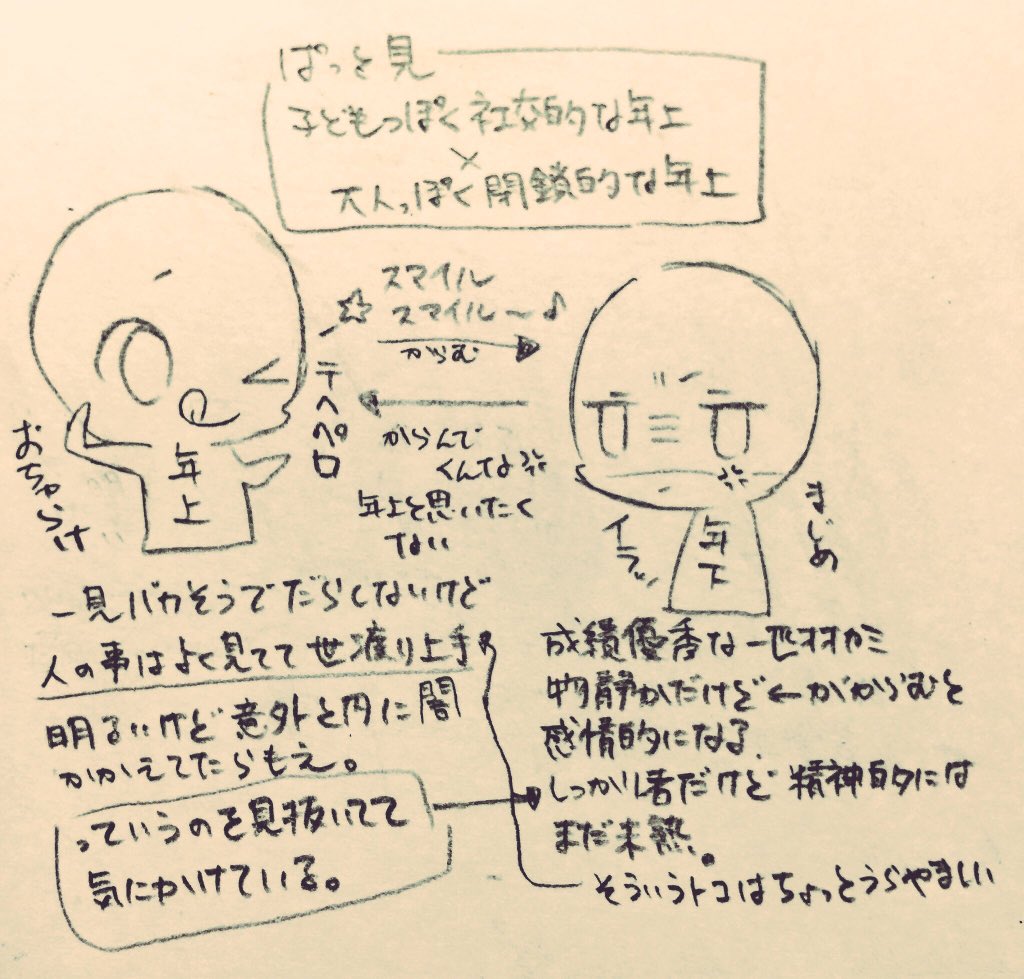 ぱっと見
子どもっぽく社交的な年上
×
大人っぽく閉鎖的な年上
スマイル
スマイル〜♪
からむ
テヘペロ
からんで
くんな
年上と思いたく
ない
おちゃらけ
年上
まじめ
イラッ
年下
一見バカそうでだらしないけど
人の事はよく見てて世渡り上手
明るいけど意外と内に闇
かかえてたらもえ。
っていうのを見抜いてて
気にかけている。
成績優秀な一匹オオカミ
物静かだけど←がからむと
感情的になる
しっかり者だけど精神的には
まだ未熟。
そういうトコはちょっとうらやましい